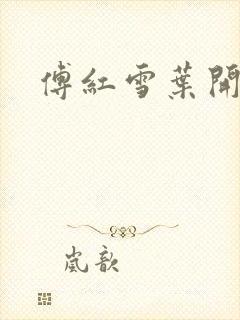 傅紅雪葉開
嵐歆